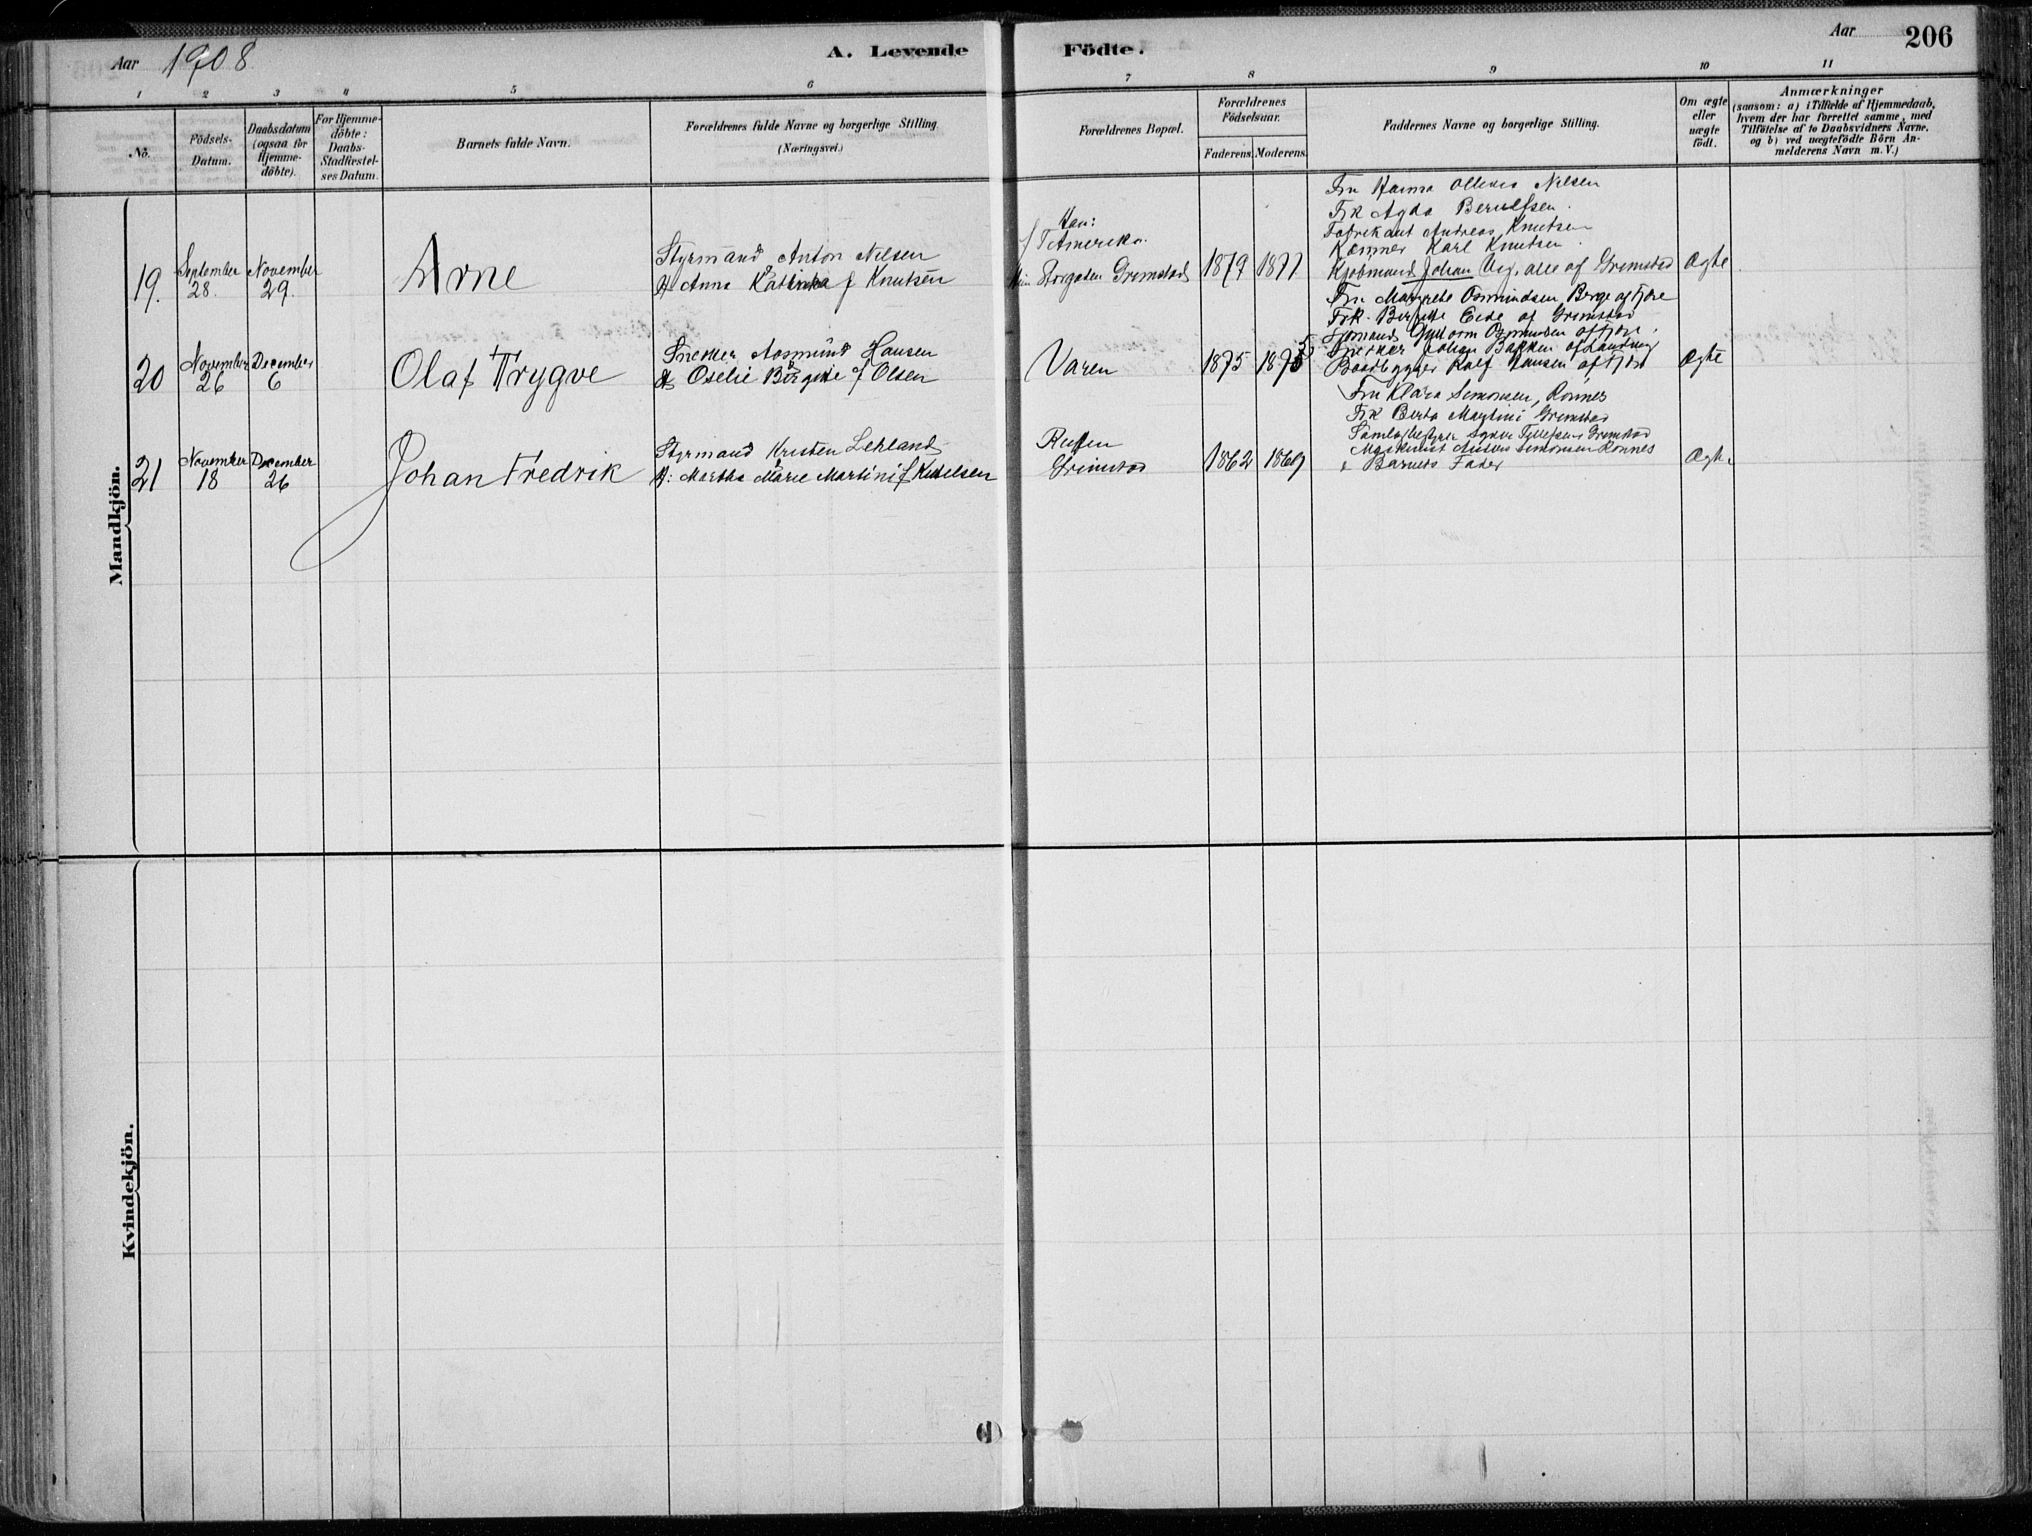 Aar 1908
A. Levende Födte.
Aar 206
1 2 3 4 5 6 7 8 9 10 11
No.
Födsels-
Datum.
Daabsdatum
(ogsaa for
Hjemme-
döbte).
For Hjemme-
döbte:
Daabs-
Stadfæstel-
ses Datum.
Barnets fulde Navn.
Forældrenes fulde Navne og borgerlige Stilling.
(Næringsvei.)
Forældrenes Bopæl.
Forældrenes
Födselsaar.
Faderens. Moderens.
Faddernes Navne og borgerlige Stilling.
Om ægte
eller
uægte
födt.
Anmærkninger
(saasom: a) i Tilfælde af Hjemmedaab,
hvem der har forrettet samme, med
Tilföielse af to Daabsvidners Navne.
og b) ved uægtefödte Börn An-
melderens Navn m. V.)
Mandkjön.
19.
September
28.
November
29.
Arne
Styrmand Anton Nilsen
Anna Katinka f Knutsen
Han:
Amerika.
Storgaten Grimstad
1879 1877
Fru Hanna Nilsen
Frk Agda Berulfsen.
Fabrikant Andreas Knutsen
Karl Knutsen
Kjöbmand Johan alle af Grimstad
Ægte
20
November
26
December
6
Olaf Trygve
Snekker Aasmund Hansen
Oselie Birgitte f Olsen
Varen
1875 1875
Fru Margrete Osmundsen Berge af Fjære
Frk. Birgitte Eide af Grimstad
Osmundsen af Fjære.
Snekker Johan Bakken af Landvig
Baadbygger Hansen af Fjære
Ægte
21
November
18
December
26
Johan Fredrik
Styrmand Kristen Lehland
Martha Marie Martini f Kittelsen
Grimstad
1862 1869
Fru Klara Simonsen, Rönnes
Frk Berta Martini Grimstad
Grimstad
Maskinist Simonsen Rönnes
Barnets Fader
Ægte
Kvindekjön.